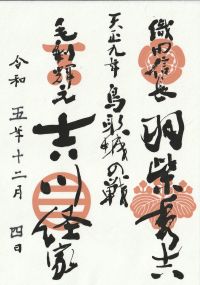 織田信長
羽柴秀吉
天正九年 鳥取城の戦
毛利輝元
吉川経家
令和 五年十二月 四日